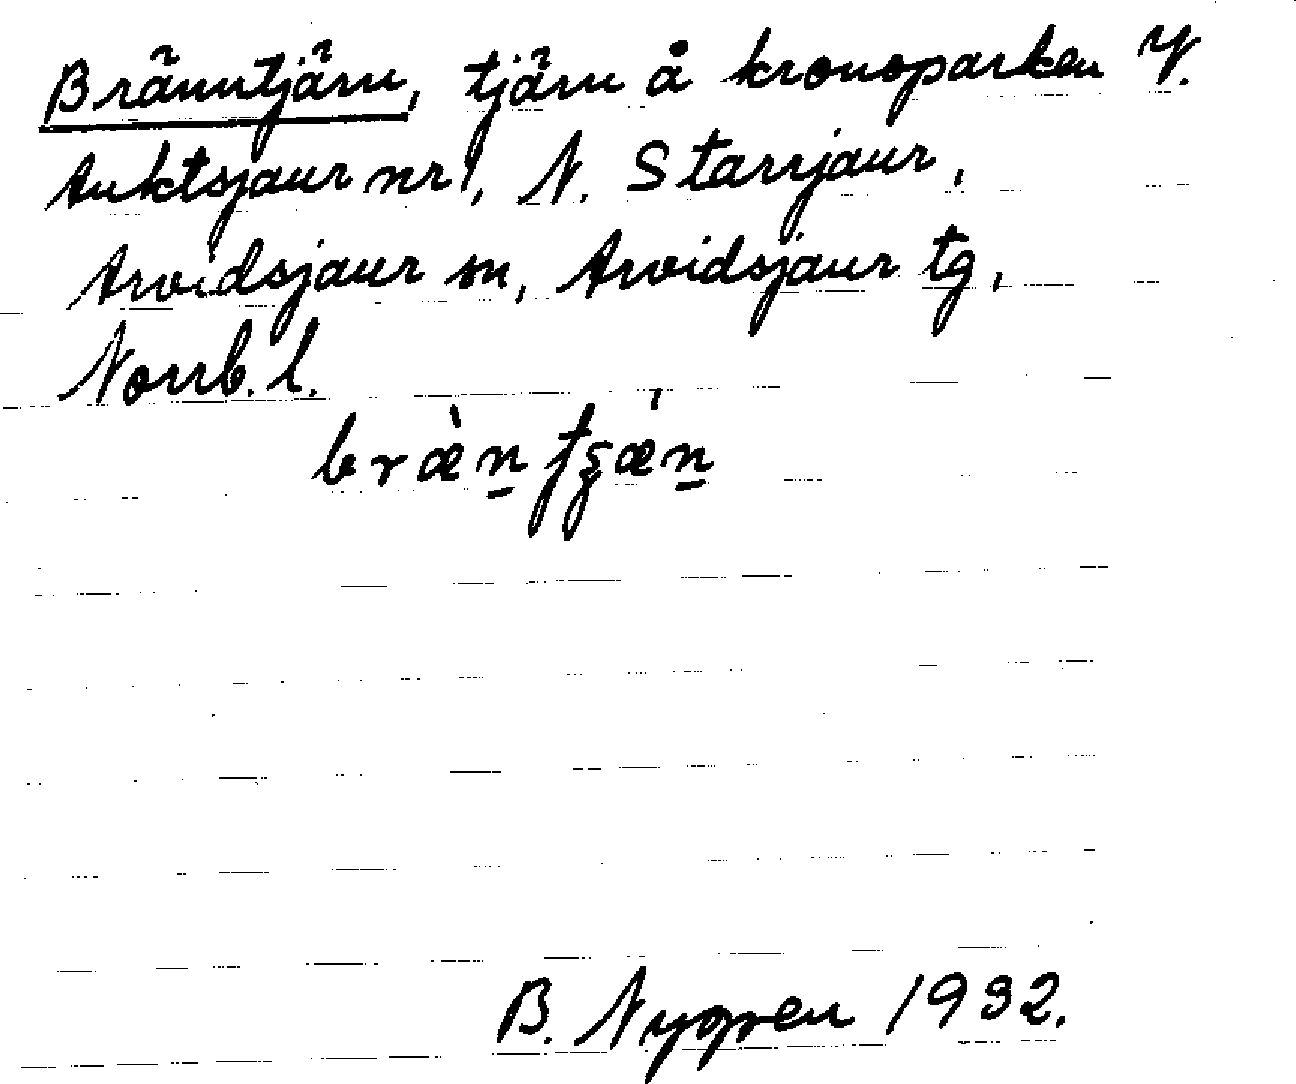 Bränntjärn, tjärn å kronoparken V.
Auktsjaur nr 1, N. Starrjaur,
Arvidsjaur sn, Arvidsjaur tg,
Norrb. l.
B. Nygren 1932.